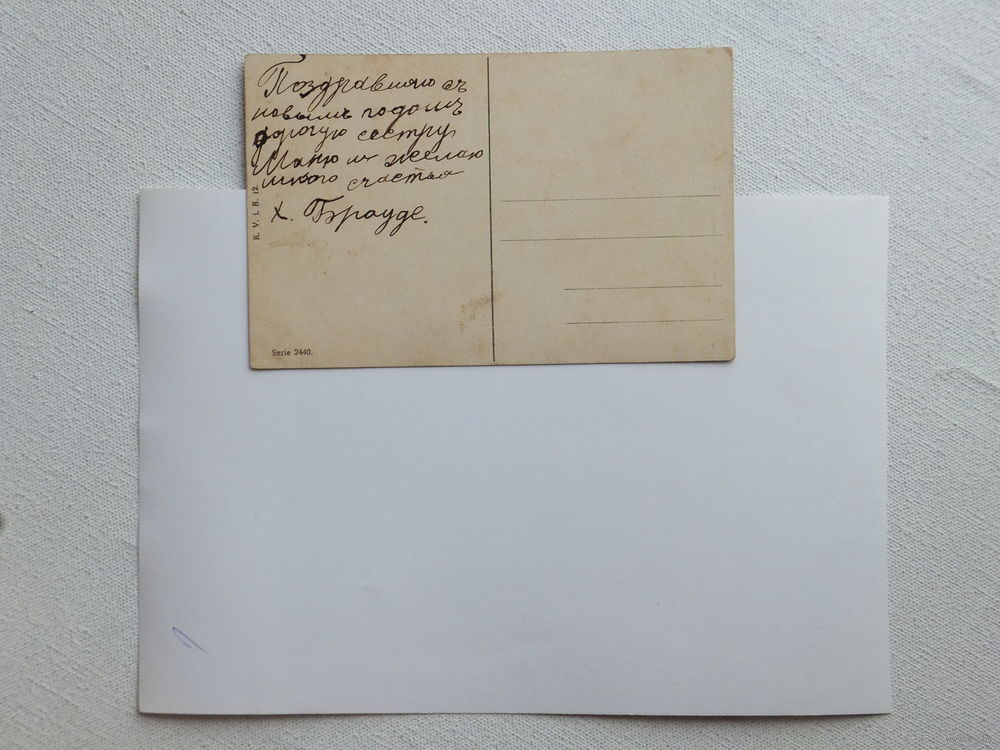 Поздравляю съ
новымъ годомъ
дорогую сестру
Маню и желаю
много счастья
Х. Брауде.
K. V. i. B. 12.
Serie 2440.